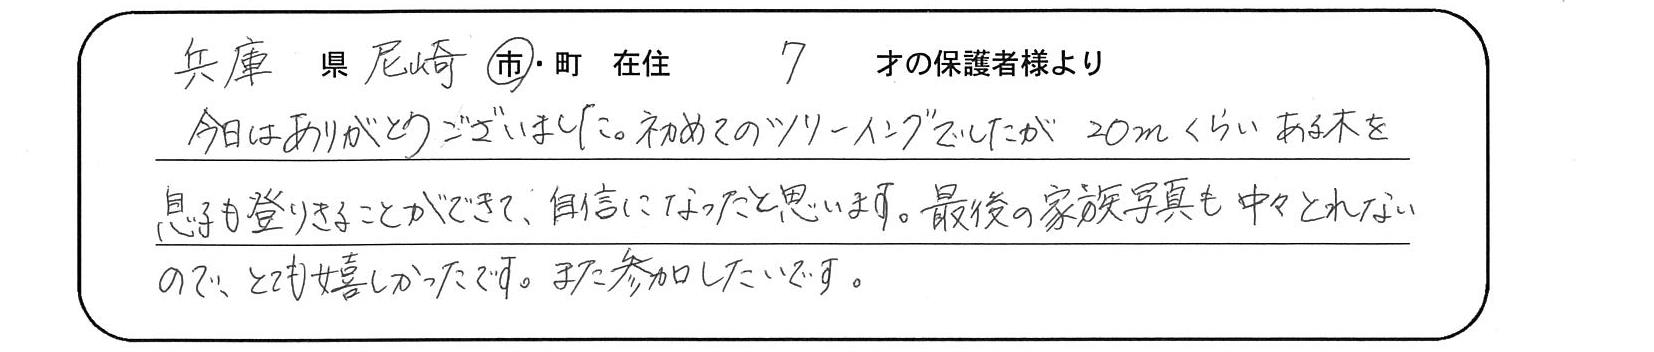 兵庫 県 尼崎 市・町 在住 7 才の保護者様より
今日はありがとうございました。初めてのツリーイングでしたが 20mくらいある木を
息子も登りきることができて、自信になったと思います。最後の家族写真も中々とれない
ので、とても嬉しかったです。また参加したいです。